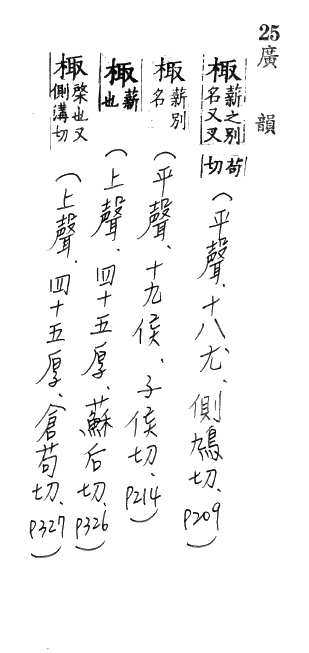 25
廣韻
棷薪之別名又叉苟切(平聲、十八尤、側鳩切、P209)
棷薪別名(平聲、十九侯、子侯切、P214)
棷薪也(上聲、四十五厚、蘇后切、P326)
棷棨也又側溝切(上聲、四十五厚、倉苟切、P327)